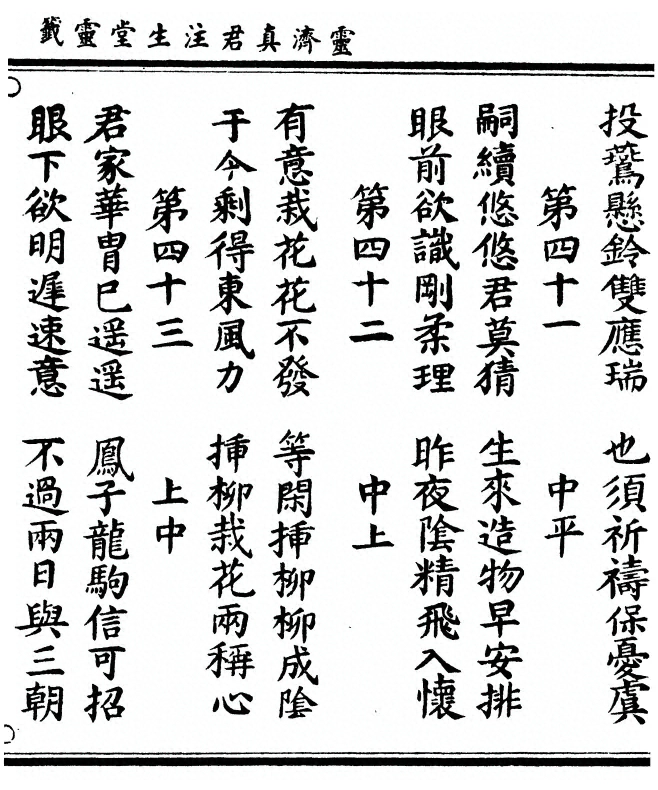 靈濟真君注生堂靈籤
投鷰懸鈴雙應瑞 也須祈禱保憂虞
第四十一 中平
嗣續悠悠君莫猜 生來造物早安排
眼前欲識剛柔理 昨夜陰精飛入懷
第四十二 中上
有意栽花花不發 等閑揷柳柳成陰
于今剩得東風力 揷柳栽花兩稱心
第四十三 上中
君家華胄已遥遥 鳳子龍駒信可招
眼下欲明遲速意 不過兩日與三朝